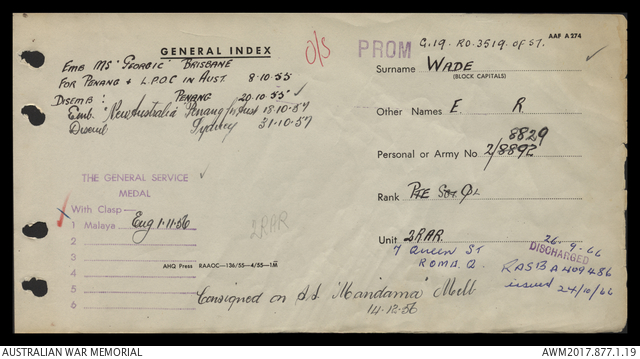 GENERAL INDEX
O/S
PROM
C.19. RO.3519.OF 57.
AAF A 274
EMB MS "GEORGIC" BRISBANE
FOR PENANG + L.P.O.C IN AUST. 8·10·55
DISEMB: PENANG 20.10.55
Emb. "New Australia" Penang for Aust 18·10·57
Disemb Sydney 31·10·57
Surname WADE
(BLOCK CAPITALS)
Other Names E. R
8829
Personal or Army No. 2/8892
Rank PTE
Unit 2RAR.
7 QUEEN ST
ROMA. Q.
26.9.66
DISCHARGED
RASB A 409486
issued 24/10/66
THE GENERAL SERVICE
MEDAL
With Clasp
1 Malaya Eng 1·11·56
2
3
4
5
6
2RAR
AHQ Press RAAOC—136/55—4/55—1M
Consigned on S.S. "Mandama" Melb
14·12·56
AUSTRALIAN WAR MEMORIAL
AWM2017.877.1.19